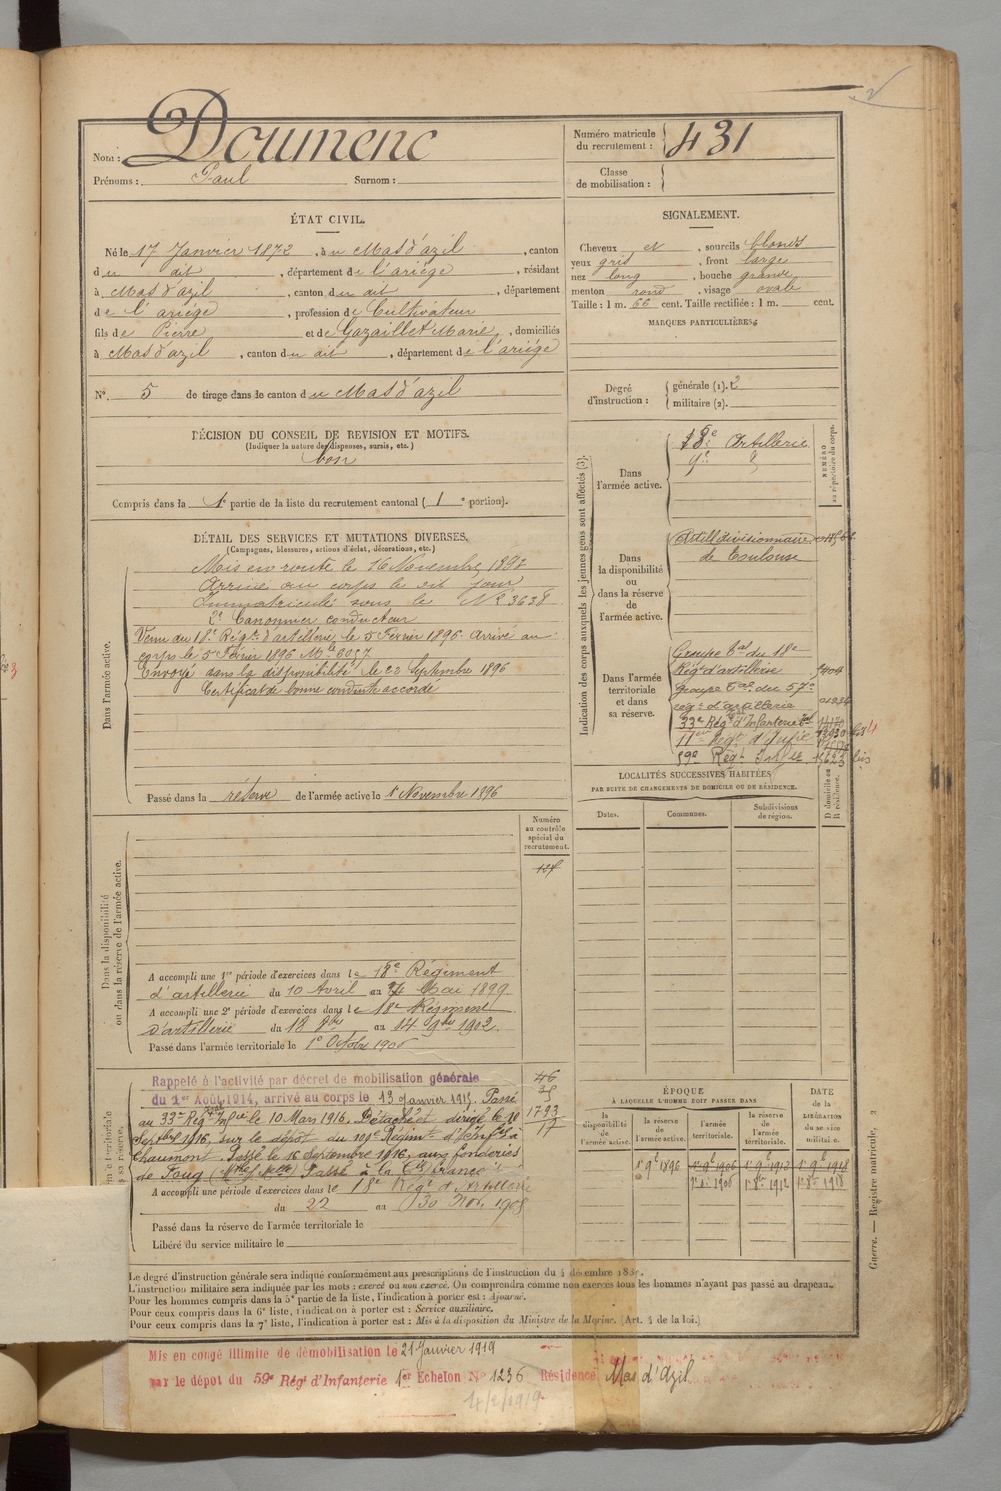 Nom : Doumenc
Prénoms : Paul Surnom :
Numéro matricule du recrutement : 431
Classe de mobilisation :
ÉTAT CIVIL.
Né le 17 Janvier 1872, à u Mas d'azil, canton
du dit, département de l'ariége, résidant
à Mas d'azil, canton du dit, département
de l'ariége, profession de Cultivateur
fils de Pierre et de Gazaillet Marie, domiciliés
à Mas d'azil, canton du dit, département de l'ariége
N° 5 de tirage dans le canton du Mas d'azil
DÉCISION DU CONSEIL DE REVISION ET MOTIFS.
(Indiquer la nature des dispenses, sursis, etc.)
bon
Compris dans la 1e partie de la liste du recrutement cantonal (1e portion).
SIGNALEMENT.
Cheveux et, sourcils blonds
yeux gris, front large
nez long, bouche grande
menton rond, visage ovale
Taille : 1 m. 66 cent. Taille rectifiée : 1 m. cent.
MARQUES PARTICULIÈRES
Degré d'instruction : générale (1). 2
militaire (2).
DÉTAIL DES SERVICES ET MUTATIONS DIVERSES.
(Campagnes, blessures, actions d'éclat, décorations, etc.)
Dans l'armée active.
Mis en route le 16 Novembre 1893
Arrivé au corps le dit jour
Immatriculé sous le N° 3638
2e Canonnier conducteur
Venu du 18e Régt d'artillerie le 5 Février 1896 arrivé au
corps le 5 Février 1896 Mle 6057
Envoyé dans la disponibilité le 23 Septembre 1896
Certificat de bonne conduite accordé
Passé dans la réserve de l'armée active le 1 Novembre 1896
Indication des corps auxquels les jeunes gens sont affectés (3).
NUMÉRO au répertoire du corps.
Dans l'armée active.
18e Artillerie
9e
Dans la disponibilité ou dans la réserve de l'armée active.
Artill divisionnaire
de Toulouse
Dans l'armée territoriale et dans sa réserve.
Groupe tal du 18e
Régt d'artillerie
Groupe tal du 57e
régt d'artillerie
33e Régt d'Infanterie
11e Régt d'Infie
59e Régt Infie
LOCALITÉS SUCCESSIVES HABITÉES
PAR SUITE DE CHANGEMENTS DE DOMICILE OU DE RÉSIDENCE.
D domicile ou R résidence.
Dates. Communes. Subdivisions de région.
Numéro au contrôle spécial du recrutement.
Dans la disponibilité ou dans la réserve de l'armée active.
A accompli une 1re période d'exercices dans le 18e Régiment
d'artillerie du 10 Avril au Mai 1899.
A accompli une 2e période d'exercices dans le 18e Régiment
d'artillerie du 18 8bre au 14 9bre 1902.
Passé dans l'armée territoriale le 1er Octobre 1906
Rappelé à l'activité par décret de mobilisation générale
du 1er Août 1914, arrivé au corps le 13 Janvier 1915. Passé
au 33e Régt tal Infie le 10 Mars 1916. Détaché et dirigé le 10
Septbre 1916, sur le dépôt du 109e Régimt d'Infie à
Chaumont. Passé le 16 Septembre 1916, aux fonderies
de Foug (Mthe & Mlle) Passé à la
A accompli une période d'exercices dans le 18e Régt d'Artillerie
du 22 au 30 Nov. 1908
Passé dans la réserve de l'armée territoriale le
Libéré du service militaire le
46
1793
17
ÉPOQUE
À LAQUELLE L'HOMME DOIT PASSER DANS
DATE de la LIBÉRATION du service militaire.
la disponibilité de l'armée active.
la réserve de l'armée active.
l'armée territoriale.
la réserve de l'armée territoriale.
1er 9e 1896 1er 9e 1906 1er 9e 1912 1er 9e 1918
1er 8e 1906 1er 8e 1912 1er 8e 1918
Le degré d'instruction générale sera indiqué conformément aux prescriptions de l'instruction du 4 décembre
L'instruction militaire sera indiquée par les mots : exercé ou non exercé. On comprendra comme non exercés tous les hommes n'ayant pas passé au drapeau.
Pour les hommes compris dans la 5e partie de la liste, l'indication à porter est : Ajourné.
Pour ceux compris dans la 6e liste, l'indication à porter est : Service auxiliaire.
Pour ceux compris dans la 7e liste, l'indication à porter est : Mis à la disposition du Ministre de la Marine. (Art. 4 de la loi.)
Guerre. — Registre matricule,
Mis en congé illimité de démobilisation le 21 Janvier 1919
par le dépôt du 59e Régt d'Infanterie 1er Echelon N° 1236 Résidence Mas d'Azil
4/2/1919